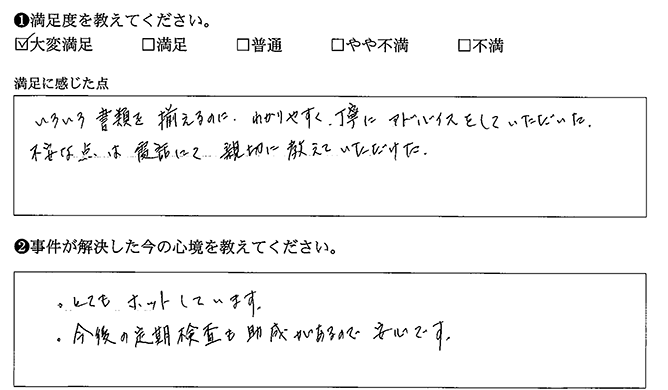 ❶満足度を教えてください。
☑大変満足 □満足 □普通 □やや不満 □不満
満足に感じた点
いろいろ書類を揃えるのに、わかりやすく、丁寧にアドバイスをしていただいた。
不安な点は電話にて親切に教えていただけた。
❷事件が解決した今の心境を教えてください。
・とてもホットしています。
・今後の定期検査も助成があるので安心です。